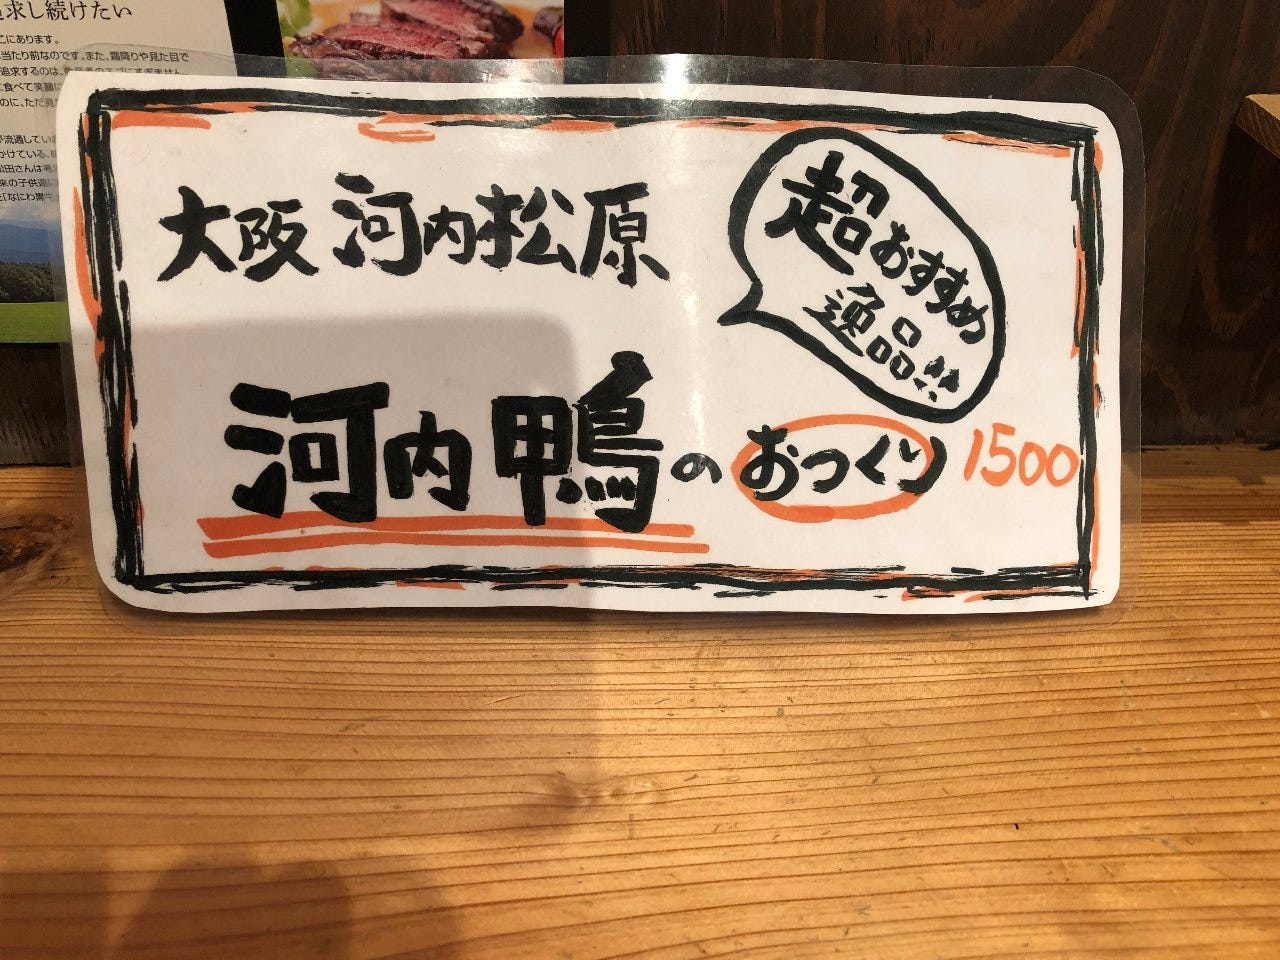 求し続けたい
こにあります。
当たり前なのです。また、霜降りや見た目で
食べて笑顔に
のに、ただ見
が流通してい
かけている。
松田さんは考
来の子供達に
「なにわ黒牛
大阪 河内松原
超おすすめ
逸品!!
河内鴨のおつくり 1500